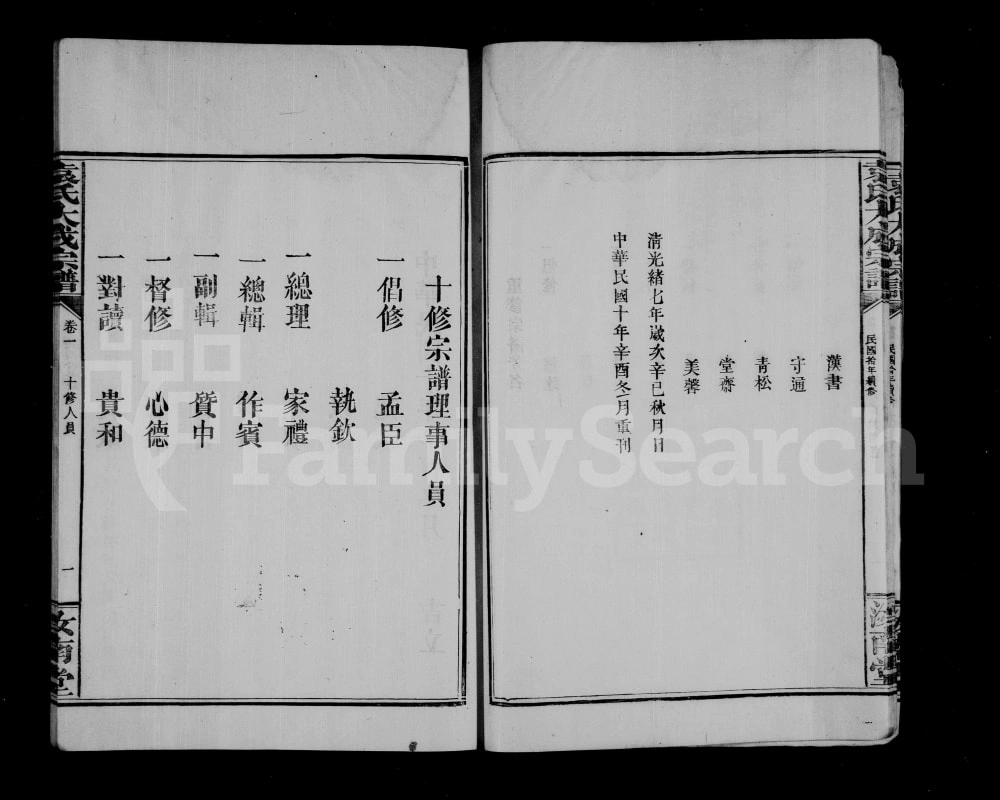 漢書
守通
青松
堂齋
美馨
清光緒七年歲次辛巳秋月日
中華民國十年辛酉冬月重刊
袁氏大成宗譜
民國拾年續修
汝南堂
十修宗譜理事人員
一倡修 孟臣
執欽
一總理 家禮
一總輯 作賓
一副輯 質中
一督修 心德
一對讀 貴和
袁氏大成宗譜
卷一 十修人員
一
汝南堂
FamilySearch